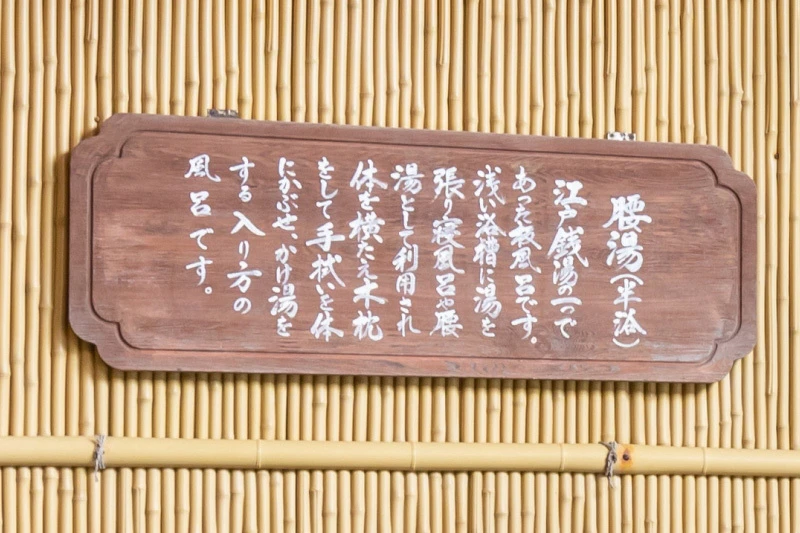 腰湯(半浴)
江戸銭湯の一つで
あった板風呂です。
浅い浴槽に湯を
張り寝風呂や腰
湯として利用され
体を横たえ木枕
をして手拭いを体
にかぶせ、かけ湯を
する入り方の
風呂です。